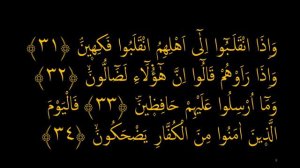 وَاِذَا انْقَلَبُٓوا اِلٰٓى اَهْلِهِمُ انْقَلَبُوا فَكِه۪ينَۘ ﴿٣١﴾
وَاِذَا رَاَوْهُمْ قَالُٓوا اِنَّ هٰٓؤُ۬لَٓاءِ لَضَٓالُّونَۙ ﴿٣٢﴾
وَمَٓا اُرْسِلُوا عَلَيْهِمْ حَافِظ۪ينَۜ ﴿٣٣﴾ فَالْيَوْمَ
الَّذ۪ينَ اٰمَنُوا مِنَ الْكُفَّارِ يَضْحَكُونَۙ ﴿٣٤﴾